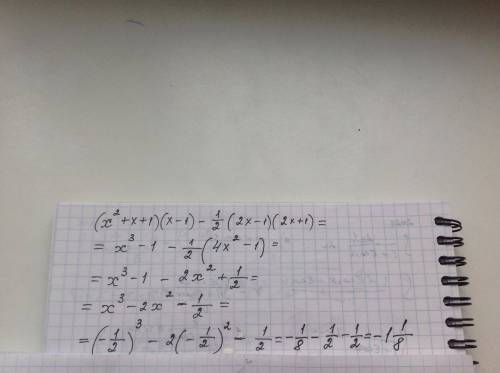 (x² + x + 1)(x - 1) - 1/2 (2x - 1)(2x + 1) =
= x³ - 1 - 1/2 (4x² - 1) =
= x³ - 1 - 2x² + 1/2 =
= x³ - 2x² - 1/2 =
= (-1/2)³ - 2(-1/2)² - 1/2 = -1/8 - 1/2 - 1/2 = -1 1/8